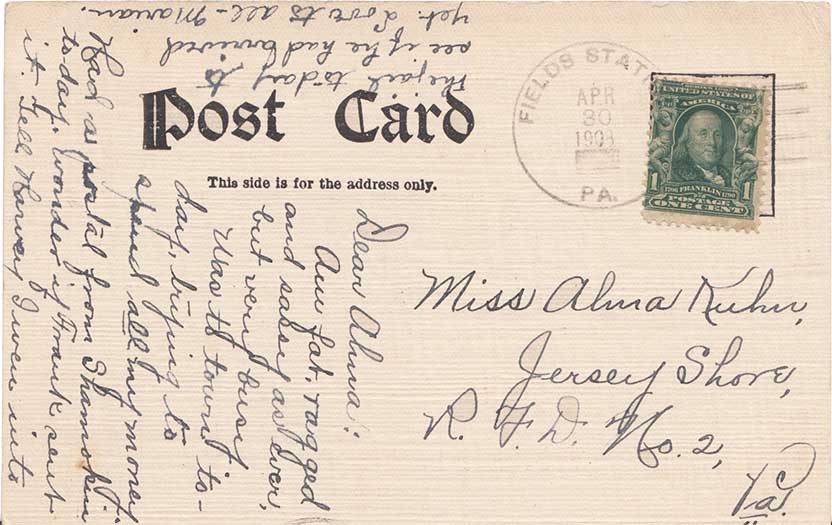 Post Card
This side is for the address only.
FIELDS STAT
APR
30
1908
PA.
UNITED STATES OF
AMERICA
1706 FRANKLIN 1790
1 1
POSTAGE
ONE CENT
Miss Alma Kuhn,
Jersey Shore,
R. F. D. No. 2,
Pa.
Dear Alma:
Am fat, ragged
and sassy as ever,
but very busy.
Was to town to-
day, trying to
spend all my money.
Had a postal from Shamokin
to-day. Wonder if Frank sent
it. Tell Harvey I went into
the jail to-day to
see if he had arrived
yet. Love to all - Marian.